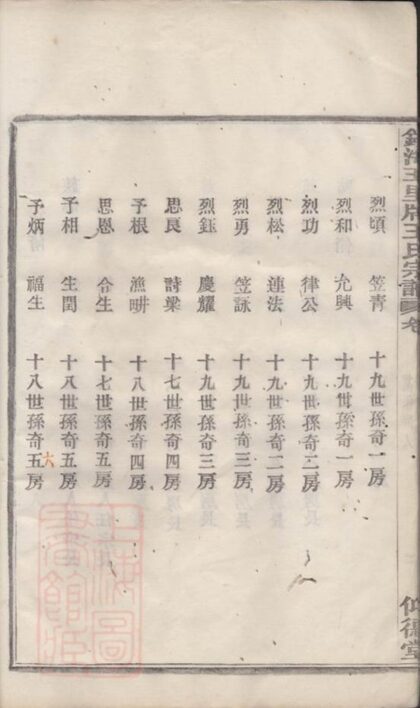 王氏宗譜
仰德堂
烈頃 笠青 十九世孫奇一房
烈和 允興 十九世孫奇一房
烈功 律公 十九世孫奇二房
烈松 蓮法 十九世孫奇二房
烈勇 笠詠 十九世孫奇三房
烈鈺 慶耀 十九世孫奇三房
思良 詩樂 十七世孫奇四房
予根 漁畊 十八世孫奇四房
思恩 令生 十七世孫奇五房
予相 生閏 十八世孫奇五房
予炳 福生 十八世孫奇五房
六
上海圖書館藏